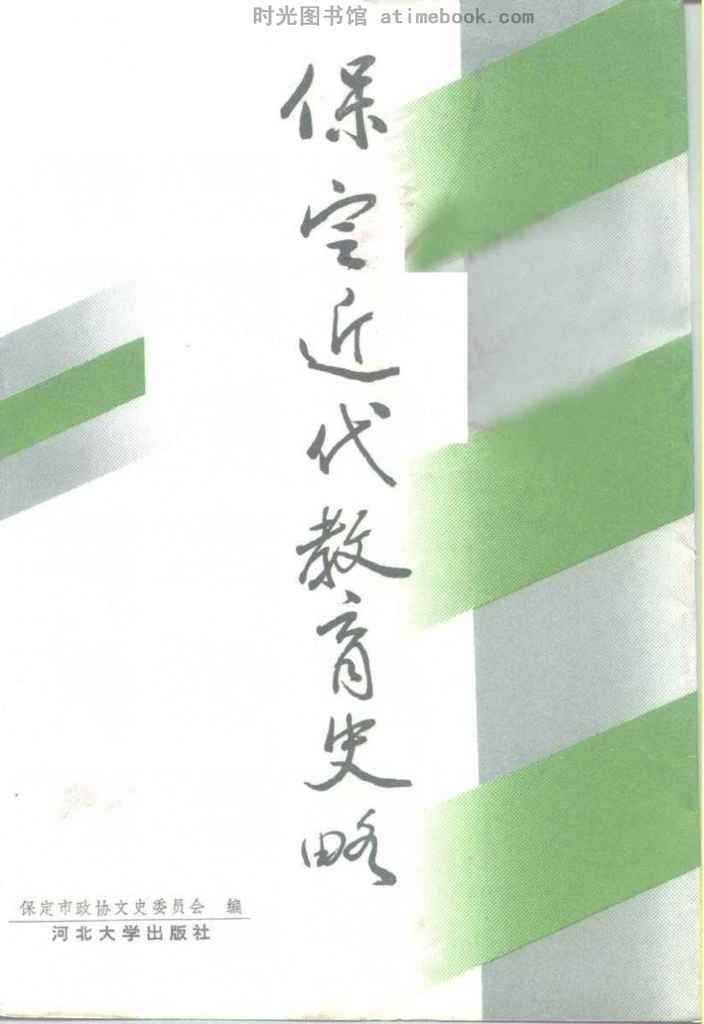 时光图书馆 atimebook.com
保定近代教育史略
保定市政协文史委员会 编
河北大学出版社